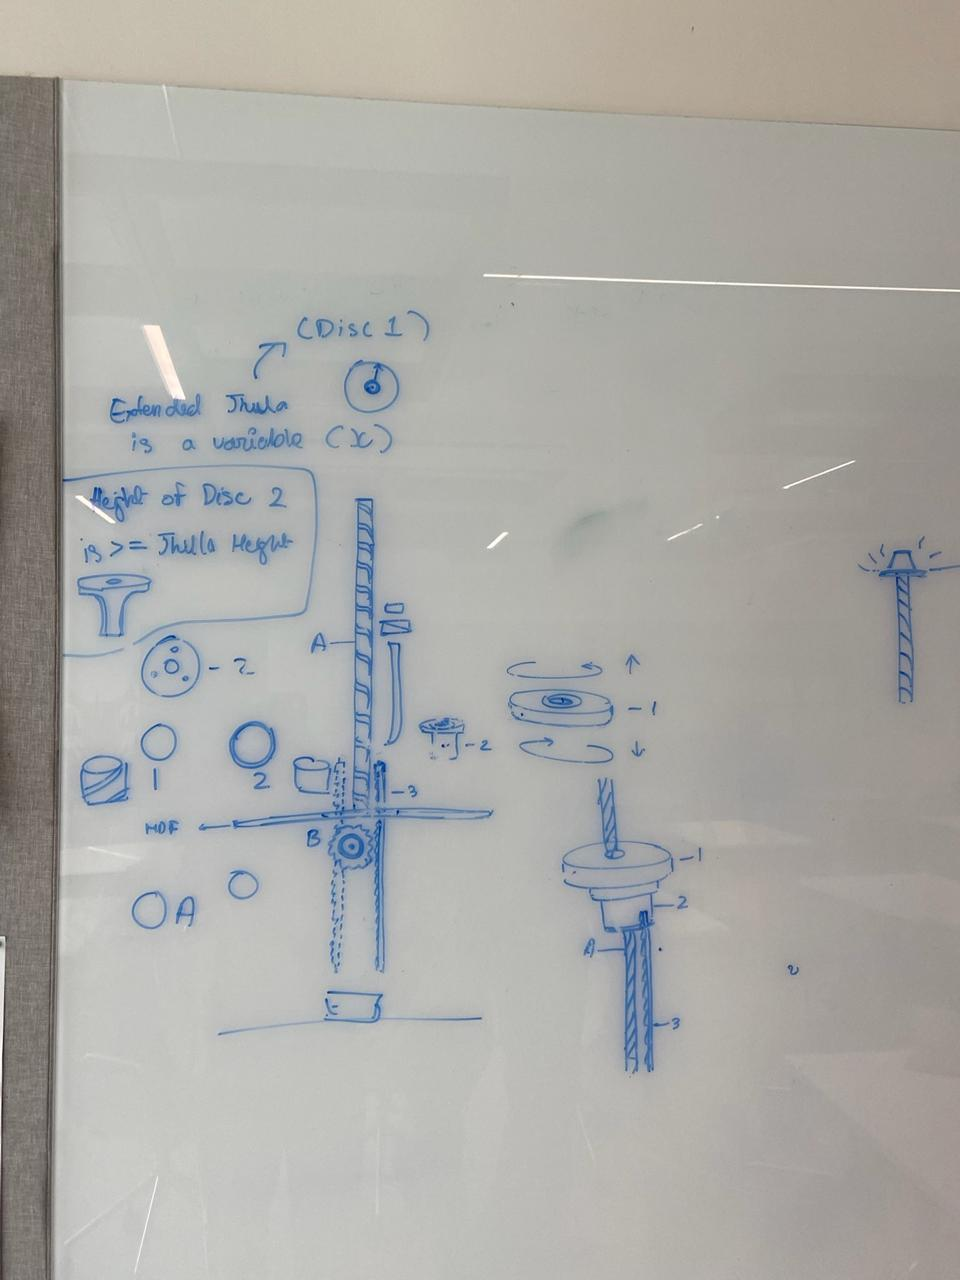 (Disc 1)
Extended Jhula
is a variable (x)
Height of Disc 2
is >= Jhula Height
A
- 2
1
2
- 2
- 1
- 3
MDF
B
- 1
- 2
A
A
- 3